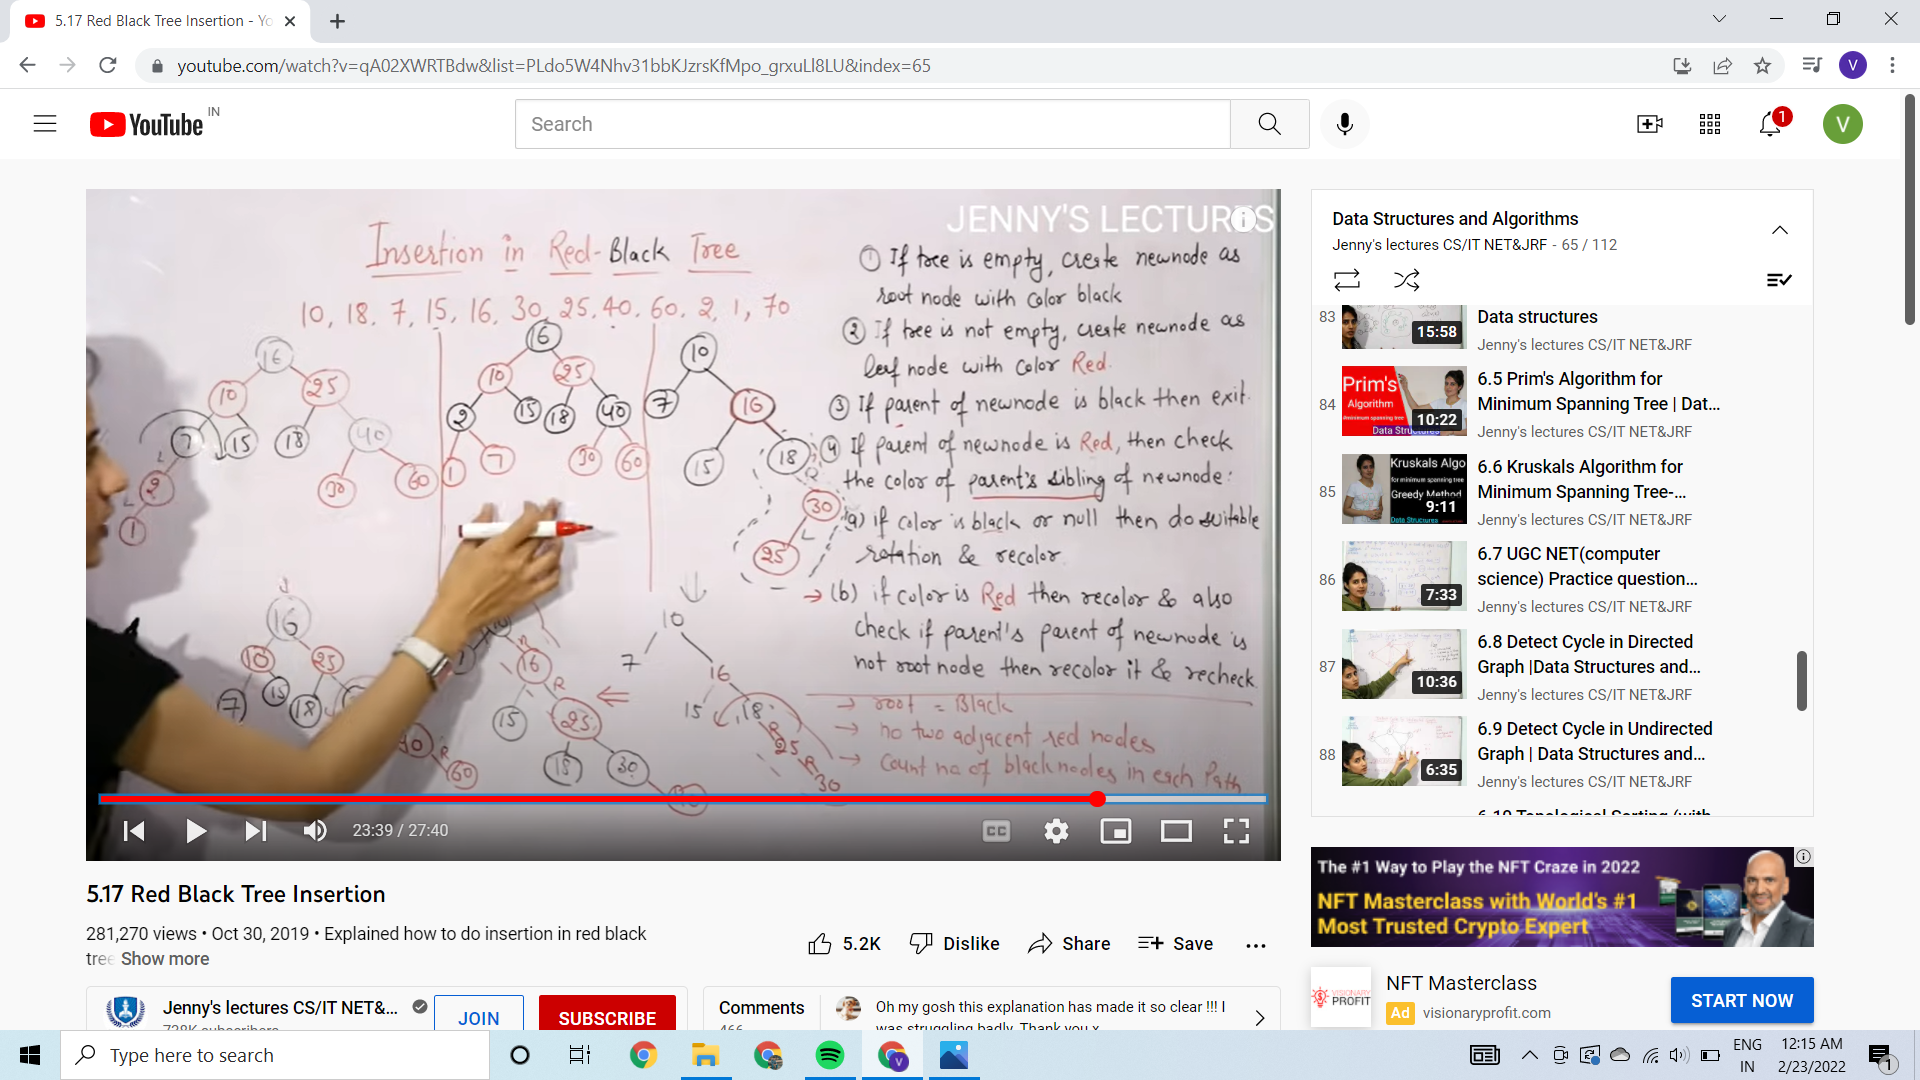 5.17 Red Black Tree Insertion - Yo
youtube.com/watch?v=qA02XWRTBdw&list=PLdo5W4Nhv31bbKJzrsKfMpo_grxuLl8LU&index=65
V
YouTube IN
Search
1
V
JENNY'S LECTURES
Insertion in Red-Black Tree
10, 18, 7, 15, 16, 30, 25, 40, 60, 2, 1, 70
① If tree is empty, create newnode as
root node with color black
② If tree is not empty, create newnode as
leaf node with color Red.
③ If parent of newnode is black then exit.
④ If parent of newnode is Red, then check
the color of parent's sibling of newnode:
(a) if color is black or null then do suitable
rotation & recolor
→ (b) if color is Red then recolor & also
check if parent's parent of newnode is
not root node then recolor it & recheck
→ root = Black
→ no two adjacent red nodes
→ Count no of black nodes in each Path
16
10 25
7 15 18 40
2 30 60
1
L
L
16
10 25
2 15 18 40
1 7 30 60
10
7 16
15 18
R
30
L
25
16
10 25
7 15 18
R
60
16
R
15 25
18 30
10
7 16
15 18
R
25
R
30
23:39 / 27:40
CC
5.17 Red Black Tree Insertion
281,270 views • Oct 30, 2019 • Explained how to do insertion in red black
tree Show more
5.2K Dislike Share Save
Jenny's lectures CS/IT NET&...
JOIN
SUBSCRIBE
Comments
Oh my gosh this explanation has made it so clear !!! I
was struggling badly. Thank you x
Data Structures and Algorithms
Jenny's lectures CS/IT NET&JRF - 65 / 112
83
15:58
Data structures
Jenny's lectures CS/IT NET&JRF
84
Prim's
Algorithm
for minimum spanning tree
Data Structures
10:22
6.5 Prim's Algorithm for
Minimum Spanning Tree | Dat...
Jenny's lectures CS/IT NET&JRF
85
Kruskals Algo
for minimum spanning tree
Greedy Method
Data Structures
9:11
6.6 Kruskals Algorithm for
Minimum Spanning Tree-...
Jenny's lectures CS/IT NET&JRF
86
7:33
6.7 UGC NET(computer
science) Practice question...
Jenny's lectures CS/IT NET&JRF
87
10:36
6.8 Detect Cycle in Directed
Graph |Data Structures and...
Jenny's lectures CS/IT NET&JRF
88
6:35
6.9 Detect Cycle in Undirected
Graph | Data Structures and...
Jenny's lectures CS/IT NET&JRF
6.10 Topological Sorting (with
The #1 Way to Play the NFT Craze in 2022
NFT Masterclass with World's #1
Most Trusted Crypto Expert
VISIONARY
PROFIT
NFT Masterclass
Ad visionaryprofit.com
START NOW
Type here to search
V
ENG
IN
12:15 AM
2/23/2022
1